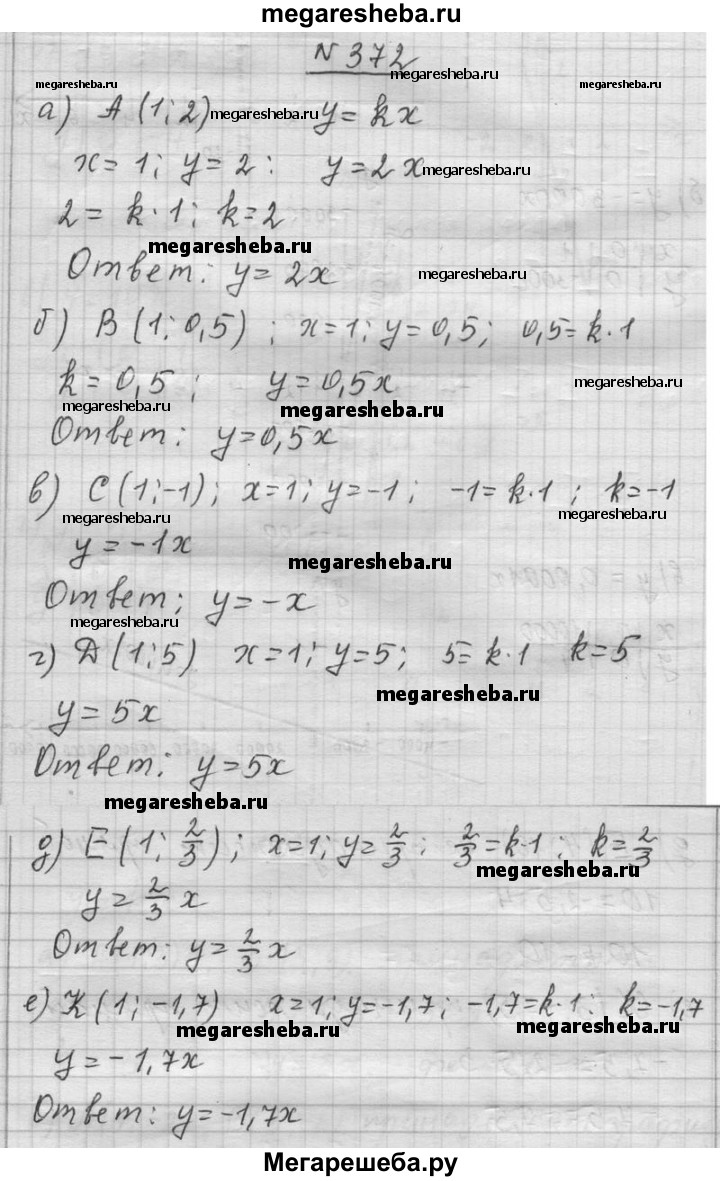 megaresheba.ru
N 372
megaresheba.ru
megaresheba.ru
а) A (1; 2) megaresheba.ru y = kx
x = 1; y = 2 : y = 2x megaresheba.ru
2 = k · 1; k = 2
megaresheba.ru
Ответ: y = 2x megaresheba.ru
б) B (1; 0,5) ; x = 1; y = 0,5; 0,5 = k · 1
k = 0,5 ; y = 0,5x megaresheba.ru
megaresheba.ru megaresheba.ru
Ответ: y = 0,5x
в) C (1; -1) ; x = 1; y = -1 ; -1 = k · 1 ; k = -1
megaresheba.ru megaresheba.ru
y = -1x megaresheba.ru
Ответ; y = -x
megaresheba.ru
г) Д (1; 5) x = 1; y = 5; 5 = k · 1 k = 5
megaresheba.ru
y = 5x
Ответ: y = 5x
megaresheba.ru
д) E (1; 2/3) ; x = 1; y = 2/3 ; 2/3 = k · 1 ; k = 2/3
megaresheba.ru
y = 2/3 x
Ответ: y = 2/3 x
е) K (1; -1,7) x = 1; y = -1,7; -1,7 = k · 1 : k = -1,7
megaresheba.ru megaresheba.ru
y = -1,7x
Ответ: y = -1,7x
Мегарешеба.ру